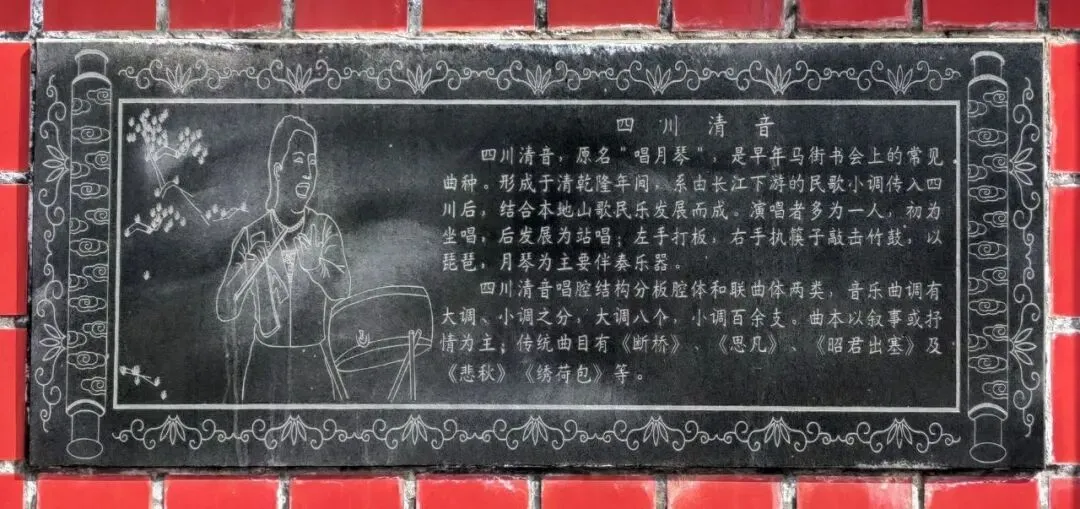 四川清音
四川清音，原名“唱月琴”，是早年马街书会上的常见
曲种。形成于清乾隆年间，系由长江下游的民歌小调传入四
川后，结合本地山歌民乐发展而成。演唱者多为一人，初为
坐唱，后发展为站唱；左手打板，右手执筷子敲击竹鼓，以
琵琶，月琴为主要伴奏乐器。
四川清音唱腔结构分板腔体和联曲体两类，音乐曲调有
大调、小调之分，大调八个，小调百余支。曲本以叙事或抒
情为主；传统曲目有《断桥》、《思凡》、《昭君出塞》及
《悲秋》《绣荷包》等。